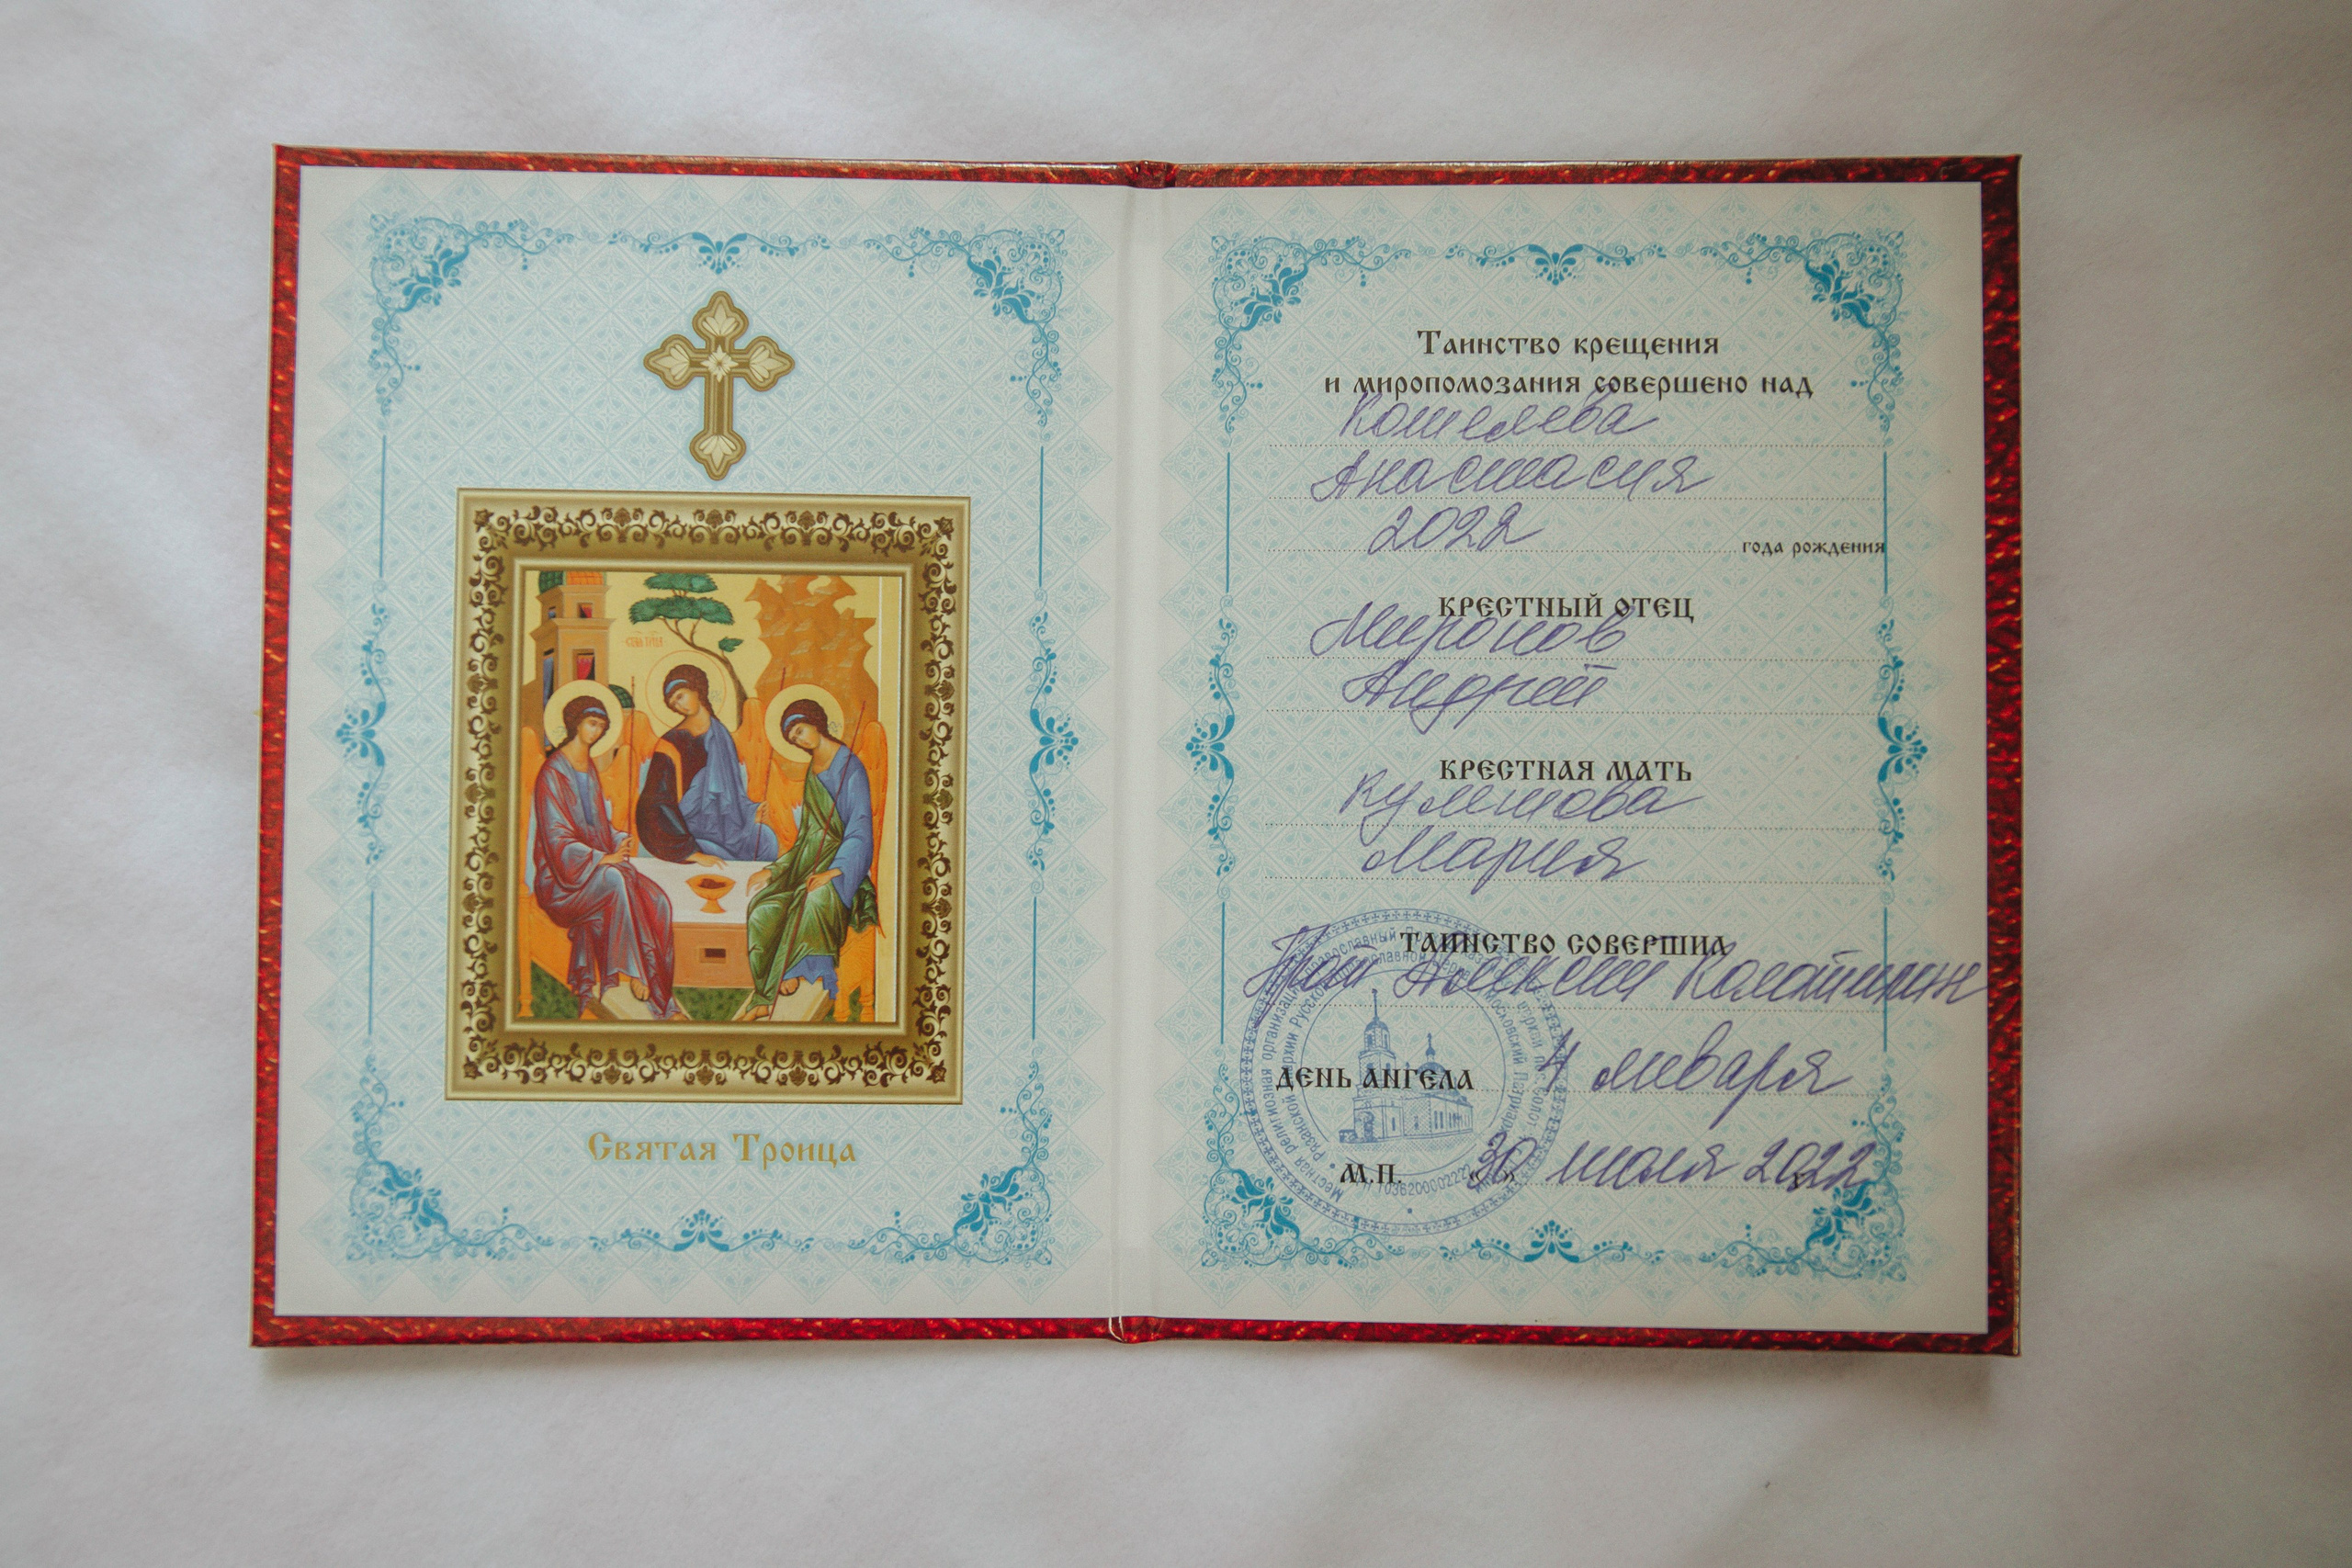 Святая Троица
Таинство крещения
и миропомозания совершено над
Кошелева
Анастасия
2022
года рождения
КРЕСТНЫЙ ОТЕЦ
Миронов
Андрей
КРЕСТНАЯ МАТЬ
Кулешова
Мария
ТАИНСТВО СОВЕРШИЛ
Алексий
ДЕНЬ АНГЕЛА 4 января
М.П. «30» июля 2022
Местная религиозная организация православный
Рязанской епархии Русской Православной Церкви Московский Патриархат